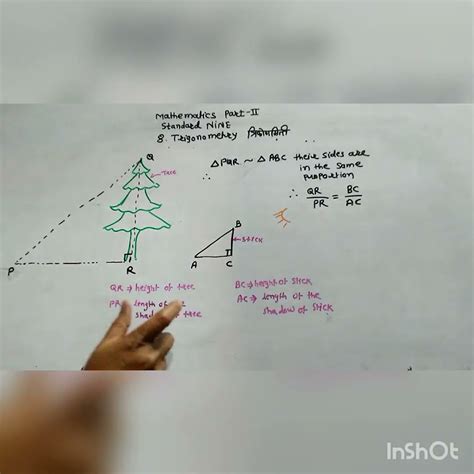 Mathematics Part-II
Standard NINE
8. Trigonometry त्रिकोणमिती
△PQR ~ △ABC their sides are
in the same
proportion
∴
∴ QR/PR = BC/AC
Q
Tree
P
R
B
stick
A
C
QR ⇒ height of tree
PR length of
shadow of tree
BC ⇒ height of stick
AC ⇒ length of the
shadow of stick
InShOt